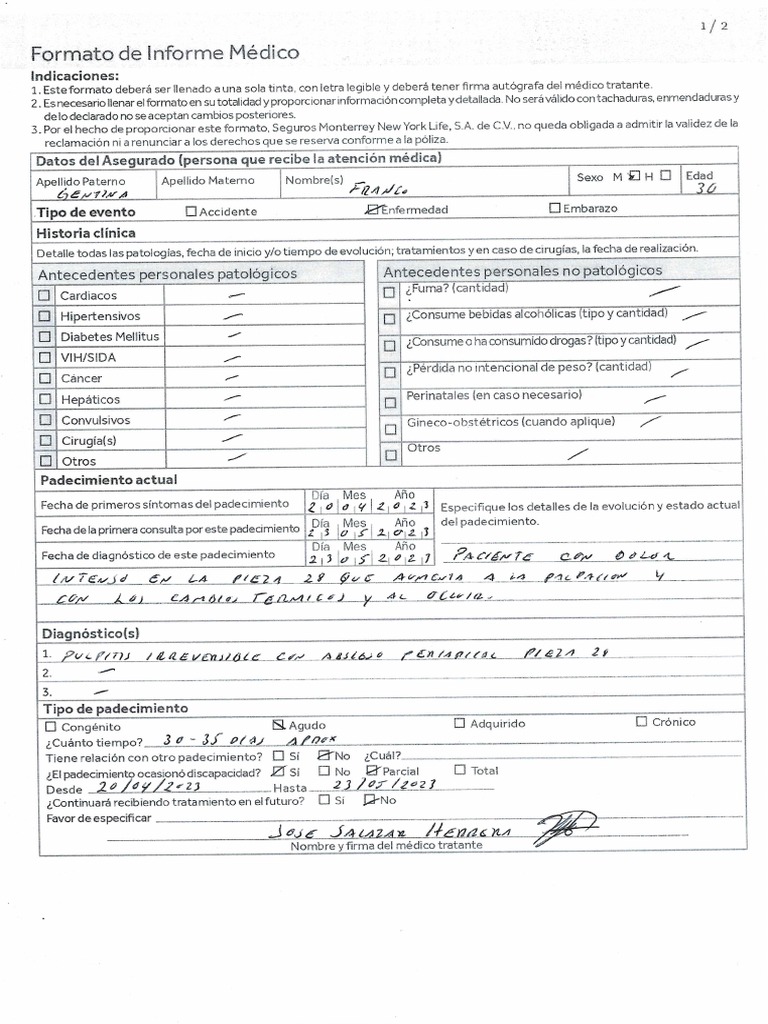 1 / 2
Formato de Informe Médico
Indicaciones:
1. Este formato deberá ser llenado a una sola tinta, con letra legible y deberá tener firma autógrafa del médico tratante.
2. Es necesario llenar el formato en su totalidad y proporcionar información completa y detallada. No será válido con tachaduras, enmendaduras y
de lo declarado no se aceptan cambios posteriores.
3. Por el hecho de proporcionar este formato, Seguros Monterrey New York Life, S.A. de C.V., no queda obligada a admitir la validez de la
reclamación ni a renunciar a los derechos que se reserva conforme a la póliza.
Datos del Asegurado (persona que recibe la atención médica)
Apellido Paterno Apellido Materno Nombre(s) Sexo M H Edad
GENTINA FRANCO 30
Tipo de evento Accidente Enfermedad Embarazo
Historia clínica
Detalle todas las patologías, fecha de inicio y/o tiempo de evolución; tratamientos y en caso de cirugías, la fecha de realización.
Antecedentes personales patológicos
Cardiacos —
Hipertensivos —
Diabetes Mellitus —
VIH/SIDA —
Cáncer —
Hepáticos —
Convulsivos —
Cirugía(s) —
Otros —
Antecedentes personales no patológicos
¿Fuma? (cantidad) —
¿Consume bebidas alcohólicas (tipo y cantidad) —
¿Consume o ha consumido drogas? (tipo y cantidad) —
¿Pérdida no intencional de peso? (cantidad) —
Perinatales (en caso necesario) —
Gineco-obstétricos (cuando aplique) —
Otros —
Padecimiento actual
Día Mes Año
Fecha de primeros síntomas del padecimiento 2 0 0 4 2 0 2 3
Día Mes Año
Fecha de la primera consulta por este padecimiento 2 3 0 5 2 0 2 3
Día Mes Año
Fecha de diagnóstico de este padecimiento 2 3 0 5 2 0 2 3
Especifique los detalles de la evolución y estado actual
del padecimiento.
PACIENTE CON DOLOR
INTENSO EN LA PIEZA 28 QUE AUMENTA A LA PALPACION Y
CON LOS CAMBIOS TERMICOS Y AL OCLUIR.
Diagnóstico(s)
1. PULPITIS IRREVERSIBLE CON ABSCESO PERIAPICAL PIEZA 28
2. —
3. —
Tipo de padecimiento
Congénito Agudo Adquirido Crónico
¿Cuánto tiempo? 30-35 DIAS APROX
Tiene relación con otro padecimiento? Sí No ¿Cuál?
¿El padecimiento ocasionó discapacidad? Sí No Parcial Total
Desde 20/04/2023 Hasta 23/05/2023
¿Continuará recibiendo tratamiento en el futuro? Sí No
Favor de especificar
JOSE SALAZAR HERRERA
Nombre y firma del médico tratante